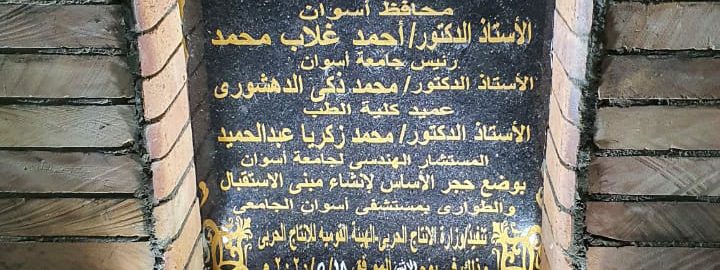 محافظ أسوان
الأستاذ الدكتور/ أحمد غلاب محمد
رئيس جامعة أسوان
الأستاذ الدكتور/ محمد ذكى الدهشورى
عميد كلية الطب
الأستاذ الدكتور/ محمد زكريا عبدالحميد
المستشار الهندسى لجامعة أسوان
بوضع حجر الأساس لإنشاء مبنى الاستقبال
والطوارى بمستشفى أسوان الجامعى
تنفيذ/وزارة الانتاج الحربى-الهيئة القومية للإنتاج الحربى
وذلك فى يوم الموافق